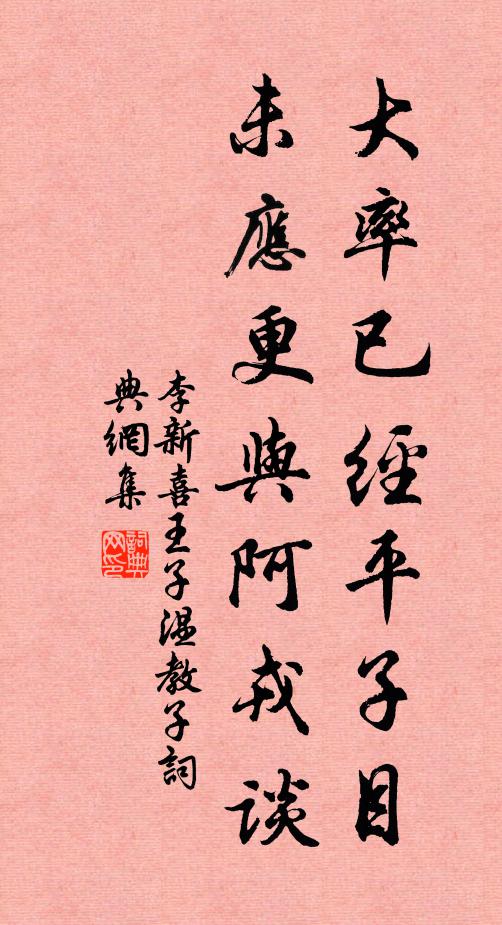 大率已經平子目
未應更與阿戎談
李新喜王子溫教子詞
典網集
詞典网印